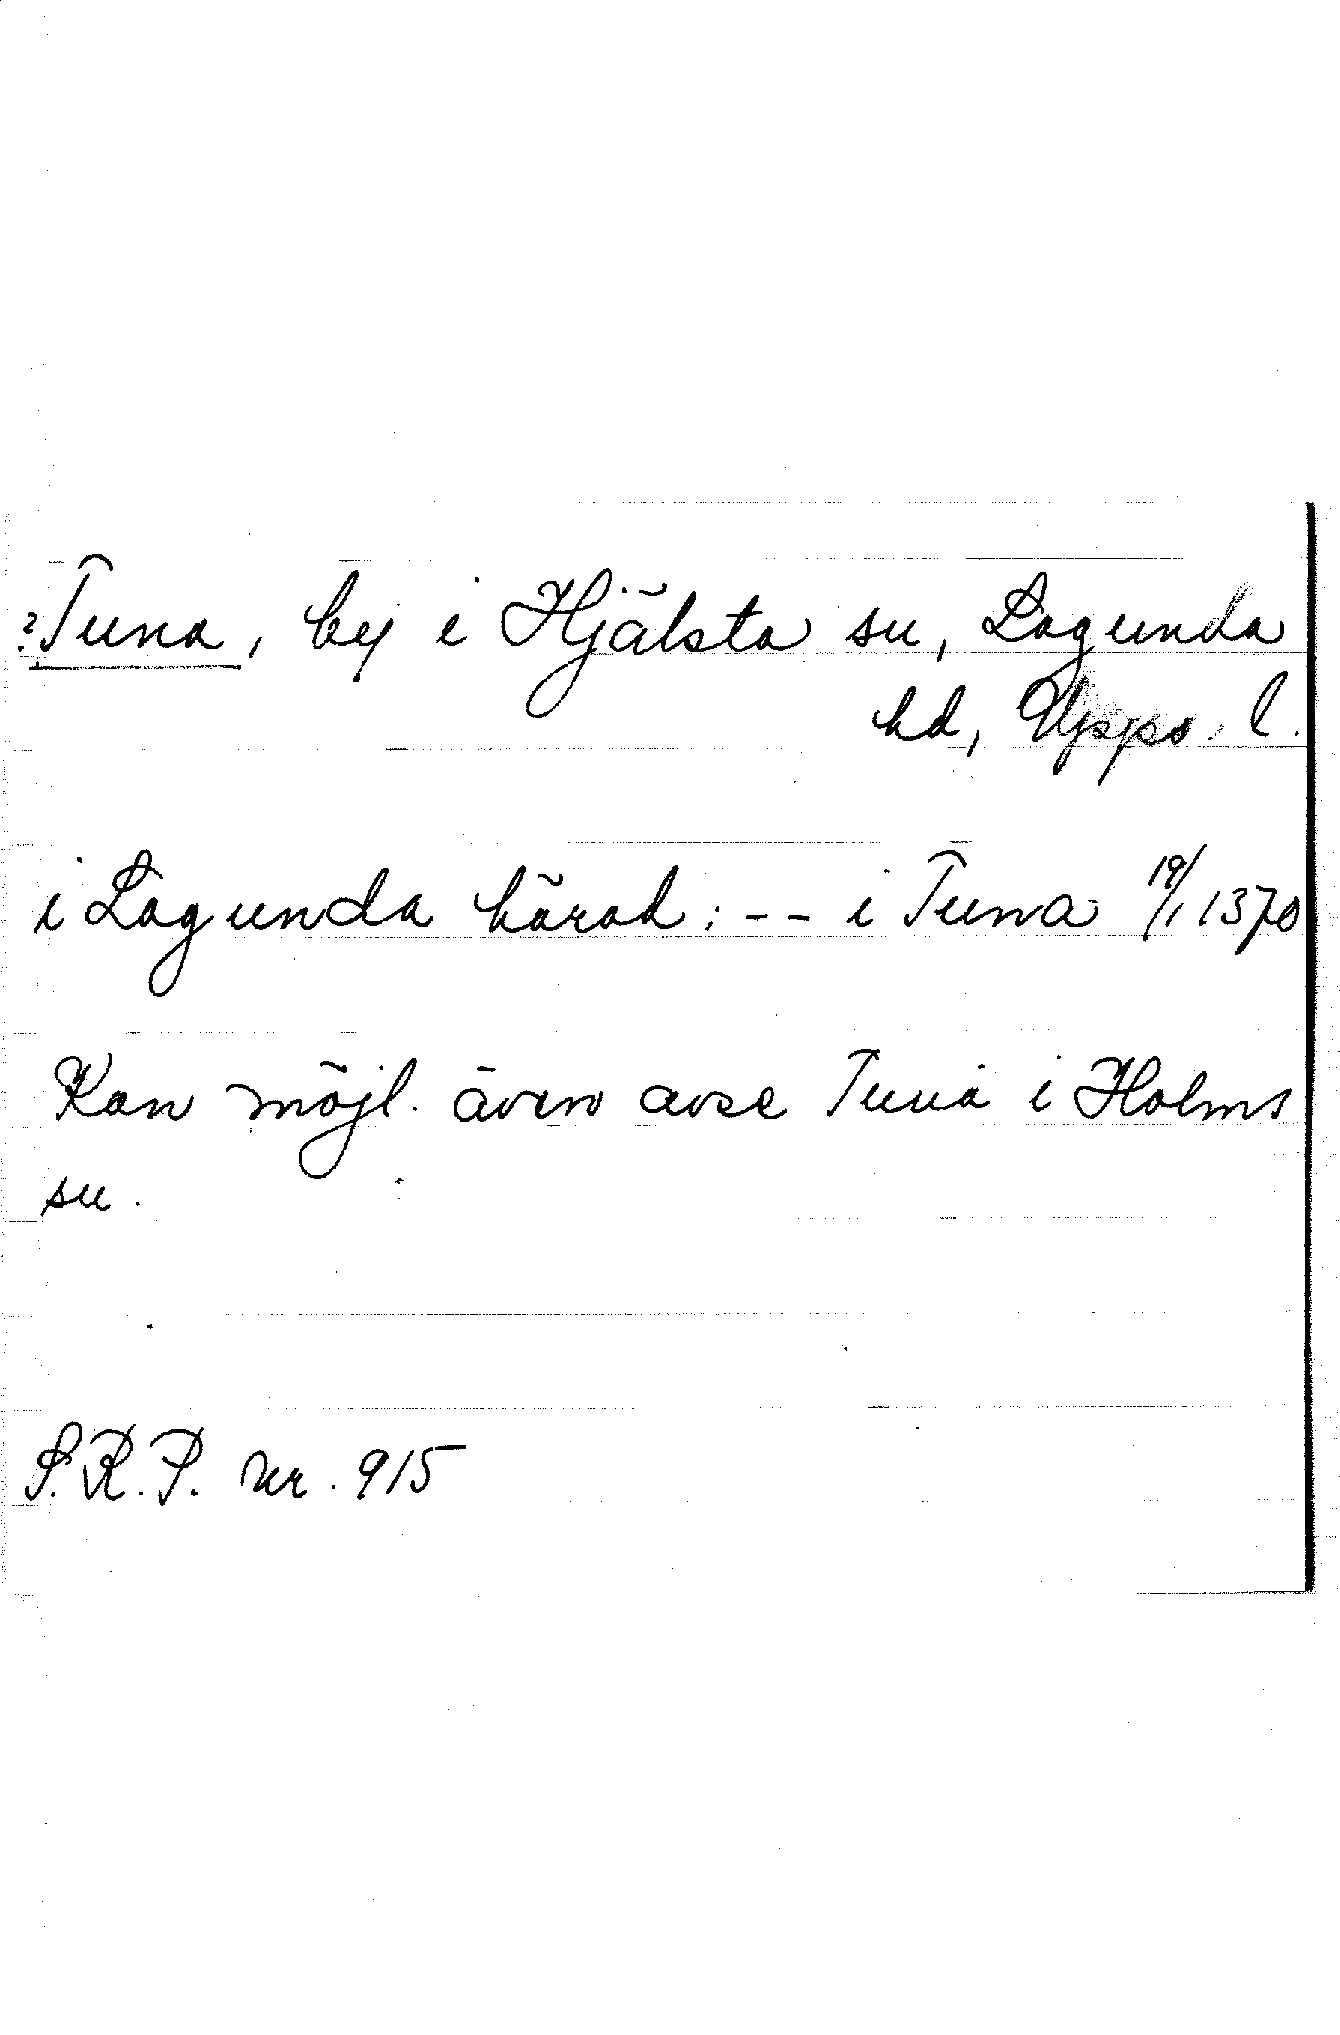 ?Tuna, by i Hjälsta sn, Lagunda
hd, Upps. l.
i Lagunda härad: -- i Tuna 19/1 1370
Kan möjl. även avse Tuna i Holms
sn.
S.R.P. nr. 915